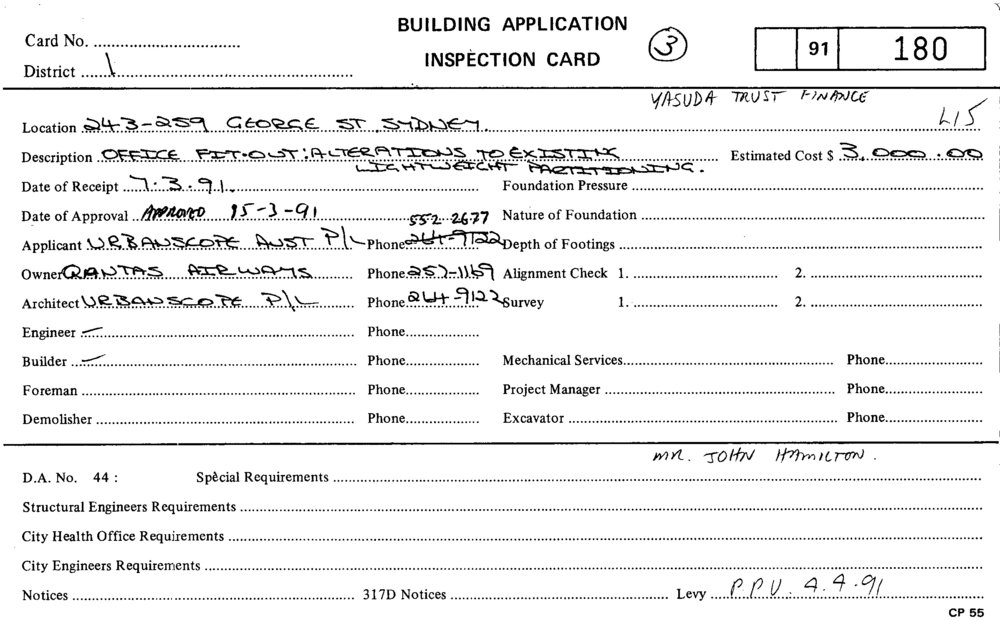 BUILDING APPLICATION
INSPECTION CARD
Card No.
District 1
3
91 180
YASUDA TRUST FINANCE
L15
Location 243-259 GEORGE ST SYDNEY.
Description OFFICE FIT-OUT: ALTERATIONS TO EXISTING Estimated Cost $ 3,000.00
LIGHTWEIGHT PARTITIONING.
Date of Receipt 7.3.91. Foundation Pressure
Date of Approval APPROVED 15-3-91 552 2677 Nature of Foundation
Applicant URBANSCOPE AUST P/L Phone 264-9122 Depth of Footings
Owner QANTAS AIRWAYS Phone 257-1169 Alignment Check 1. 2.
Architect URBANSCOPE P/L Phone 264-9122 Survey 1. 2.
Engineer — Phone
Builder — Phone Mechanical Services Phone
Foreman Phone Project Manager Phone
Demolisher Phone Excavator Phone
MR. JOHN HAMILTON.
D.A. No. 44 : Special Requirements
Structural Engineers Requirements
City Health Office Requirements
City Engineers Requirements
Notices 317D Notices Levy P.P.U. 4.4.91
CP 55